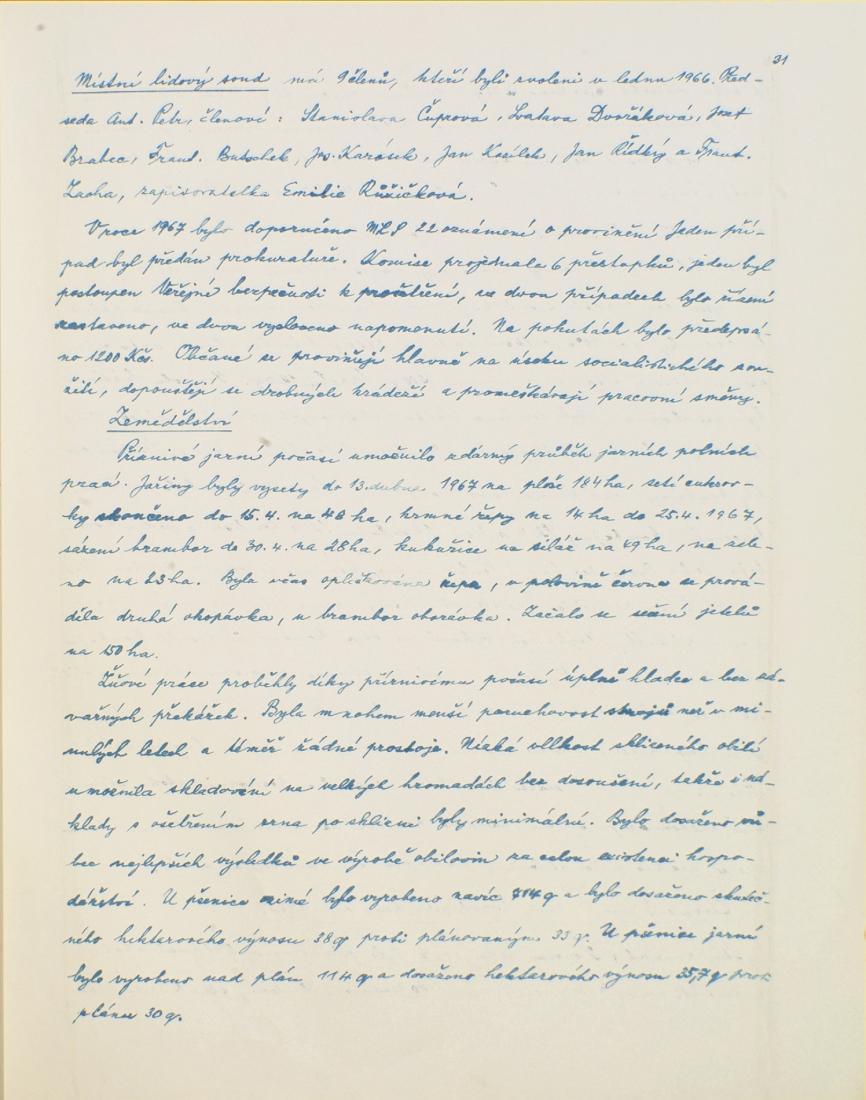 31
Místní lidový soud má 9 členů, kteří byli zvoleni v lednu 1966. Před-
seda Ant. Petr, členové: Stanislava Čuprová, Svatava Dvořáková, Josef
Brabec, Frant. Butschek, Jos. Karásek, Jan Kozílek, Jan Řídký a Frant.
Zaoha, zapisovatelka Emilie Růžičková.
V roce 1967 bylo doporučeno MLS 22 oznámení o provinění Jeden pří-
pad byl předán prokuratuře. Komise projednala 6 přestupků, jeden byl
postoupen Veřejné bezpečnosti k prošetření, ve dvou případech bylo řízení
zastaveno, ve dvou vysloveno napomenutí. Na pokutách bylo předepsá-
no 1200 Kčs. Občané se proviňují hlavně na úseku socialistického sou-
žití, dopouštějí se drobných krádeží a promeškávají pracovní směny.
Zemědělství
Příznivé jarní počasí umožnilo zdárný průběh jarních polních
prací. Jařiny byly vysety do 13. dubna 1967 na ploše 184 ha, setí cukrov-
ky skončeno do 15. 4. na 48 ha, krmné řepy na 14 ha do 25. 4. 1967,
sázení brambor do 30. 4. na 28 ha, kukuřice na siláž na 49 ha, na zele-
no na 23 ha. Byla včas oplečkována řepa, v polovině června se prová-
děla druhá okopávka, u brambor oborávka. Začalo se sečení jetelů
na 150 ha.
Žňové práce proběhly díky příznivému počasí úplně hladce a bez zá-
važných překážek. Byla mnohem menší poruchovost strojů než v mi-
nulých letech a téměř žádné prostoje. Nízká vlhkost sklizeného obilí
umožnila skladování na velkých hromadách bez dosoušení, takže i ná-
klady s ošetřením zrna po sklizni byly minimální. Bylo dosaženo vů-
bec nejlepších výsledků ve výrobě obilovin za celou existenci hospo-
dářství. U pšenice ozimé bylo vyrobeno navíc 714 q a bylo dosaženo skuteč-
ného hektarového výnosu 38 q proti plánovaným 33 q. U pšenice jarní
bylo vyrobeno nad plán 114 q a dosaženo hektarového výnosu 35,7 q proti
plánu 30 q.